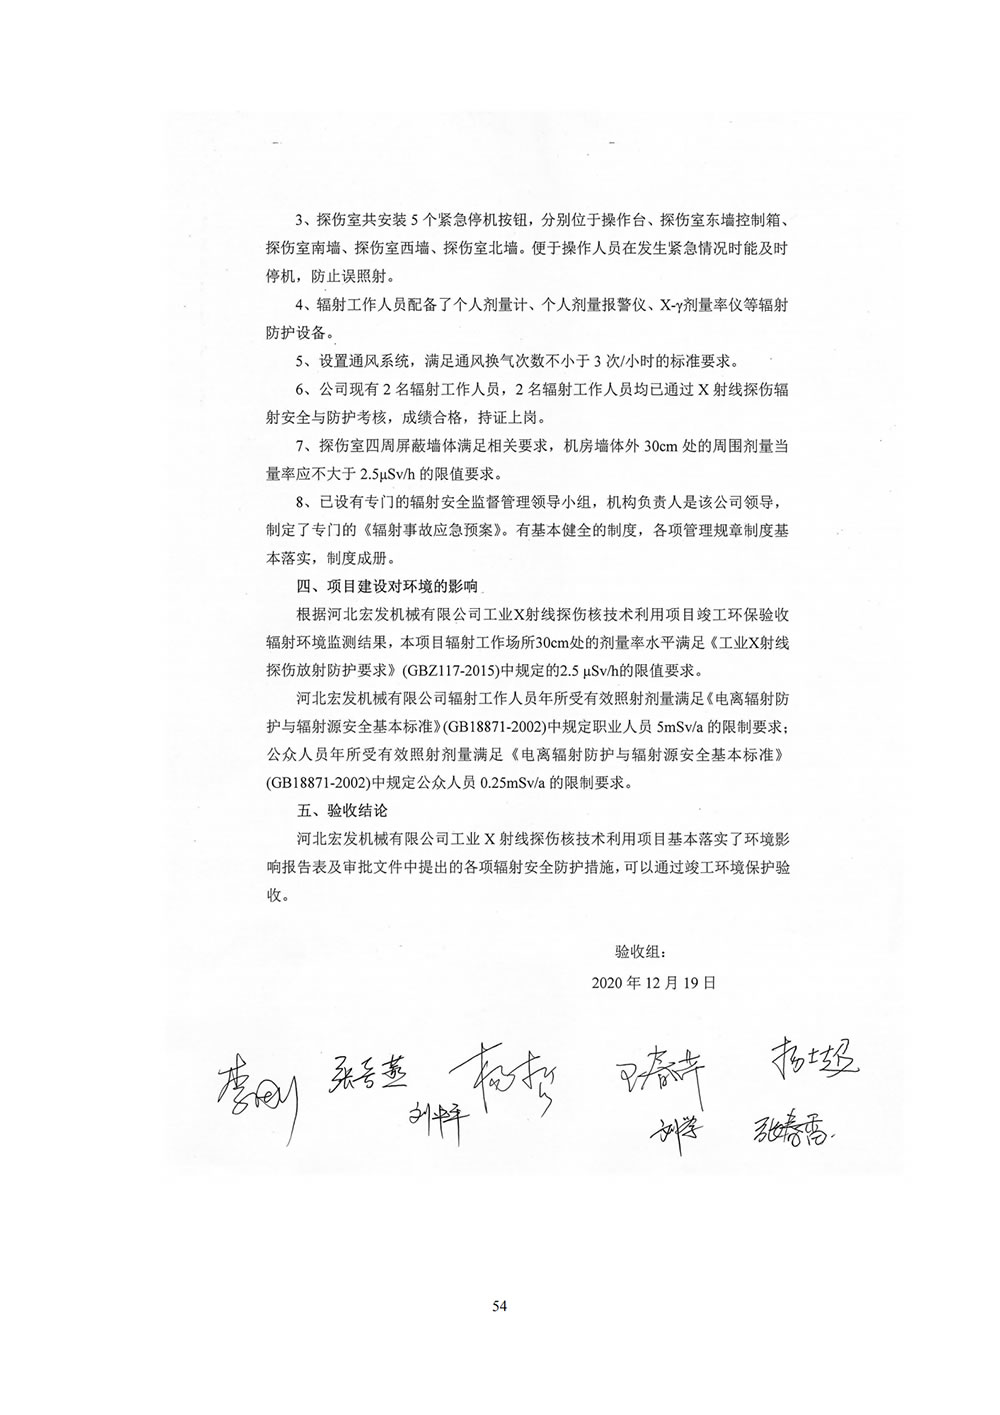 3、探伤室共安装 5 个紧急停机按钮，分别位于操作台、探伤室东墙控制箱、
探伤室南墙、探伤室西墙、探伤室北墙。便于操作人员在发生紧急情况时能及时
停机，防止误照射。
4、辐射工作人员配备了个人剂量计、个人剂量报警仪、X-γ剂量率仪等辐射
防护设备。
5、设置通风系统，满足通风换气次数不小于 3 次/小时的标准要求。
6、公司现有 2 名辐射工作人员，2 名辐射工作人员均已通过 X 射线探伤辐
射安全与防护考核，成绩合格，持证上岗。
7、探伤室四周屏蔽墙体满足相关要求，机房墙体外 30cm 处的周围剂量当
量率应不大于 2.5μSv/h 的限值要求。
8、已设有专门的辐射安全监督管理领导小组，机构负责人是该公司领导，
制定了专门的《辐射事故应急预案》。有基本健全的制度，各项管理规章制度基
本落实，制度成册。
四、项目建设对环境的影响
根据河北宏发机械有限公司工业X射线探伤核技术利用项目竣工环保验收
辐射环境监测结果，本项目辐射工作场所30cm处的剂量率水平满足《工业X射线
探伤放射防护要求》(GBZ117-2015)中规定的2.5 μSv/h的限值要求。
河北宏发机械有限公司辐射工作人员年所受有效照射剂量满足《电离辐射防
护与辐射源安全基本标准》(GB18871-2002)中规定职业人员 5mSv/a 的限制要求；
公众人员年所受有效照射剂量满足《电离辐射防护与辐射源安全基本标准》
(GB18871-2002)中规定公众人员 0.25mSv/a 的限制要求。
五、验收结论
河北宏发机械有限公司工业 X 射线探伤核技术利用项目基本落实了环境影
响报告表及审批文件中提出的各项辐射安全防护措施，可以通过竣工环境保护验
收。
验收组：
2020 年 12 月 19 日
李刚
54